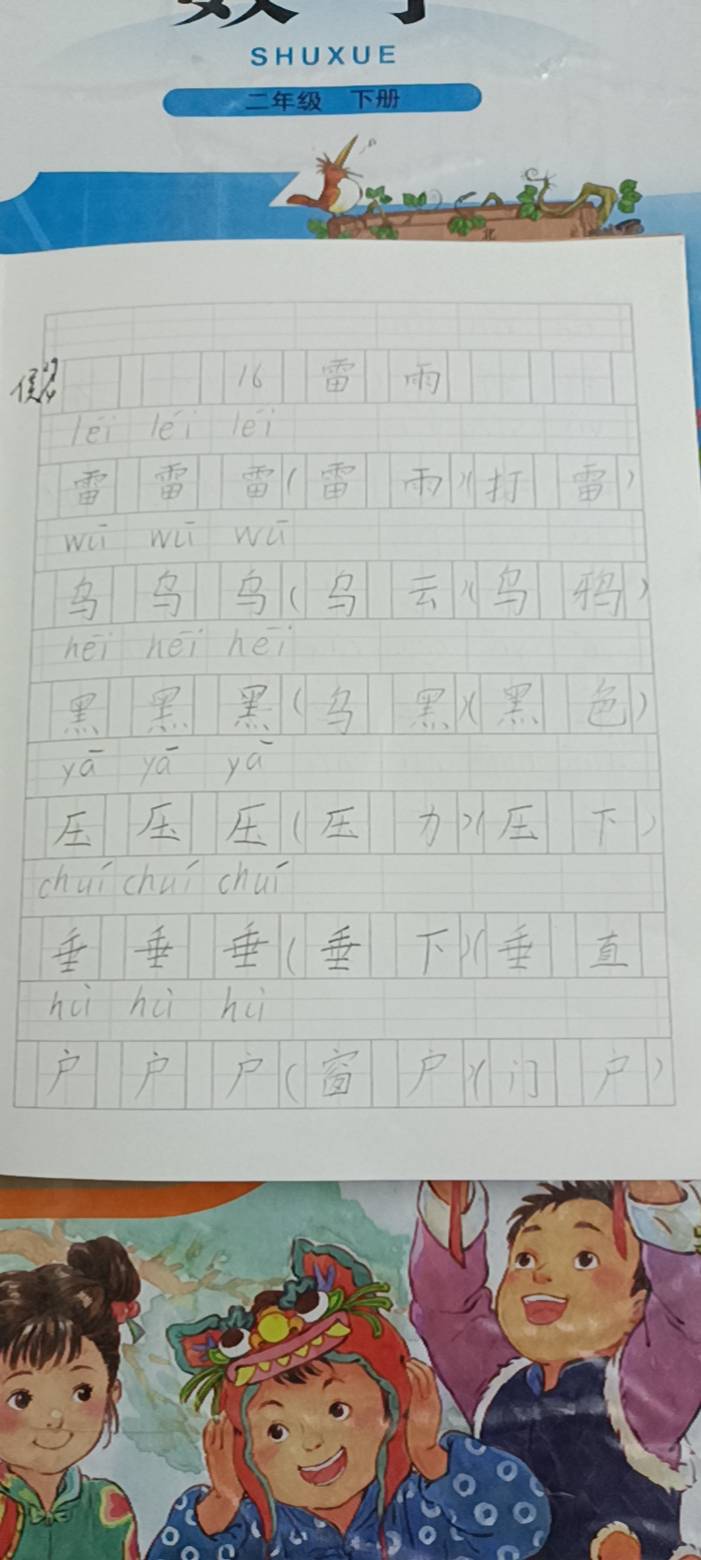 数学
SHUXUE
二年级 下册
北
16 雷雨
léi léi léi
雷 雷 雷(雷雨)(打雷)
wū wū wū
乌 乌 乌(乌云)(乌鸦)
hēi hēi hēi
黑 黑 黑(乌黑)(黑色)
yā yā yā
压 压 压(压力)(压下)
chuí chuí chuí
垂 垂 垂(垂下)(垂直
hù hù hù
户 户 户(窗户)(门户)